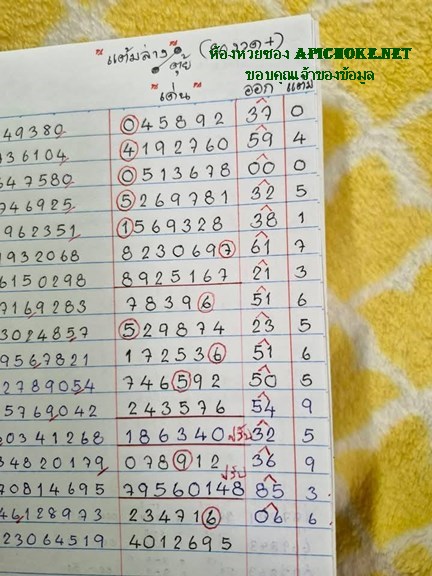 แต้มล่าง
ห้องหวยซอง APICHOKE.NET
ตุ้ย
ขอบคุณเจ้าของข้อมูล
"เด่น" ออก แต้ม
49380 045892 37 0
736104 4192760 59 4
647580 0513678 00 0
746925 5269781 32 5
962351 1569328 38 1
932068 8230697 61 7
6150298 8925167 21 3
7169283 78396 51 6
3024857 529874 23 5
9567821 172536 51 6
2789054 746592 50 5
5769042 243576 54 9
0341268 186340 ปรับ 32 5
34820179 078912 36 9
ปรับ
70814695 79560148 85 3
46128973 234716 06 6
23064519 4012695